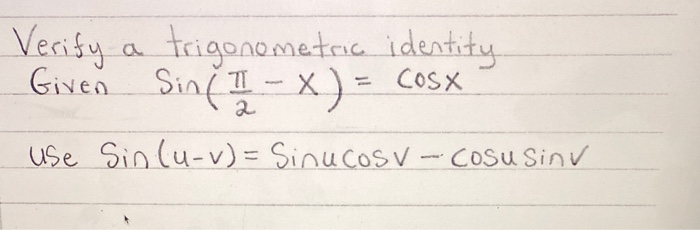 Verify a trigonometric identity
Given Sin(π/2 - x) = cosx
use Sin(u-v) = Sinucosv - cosusinv